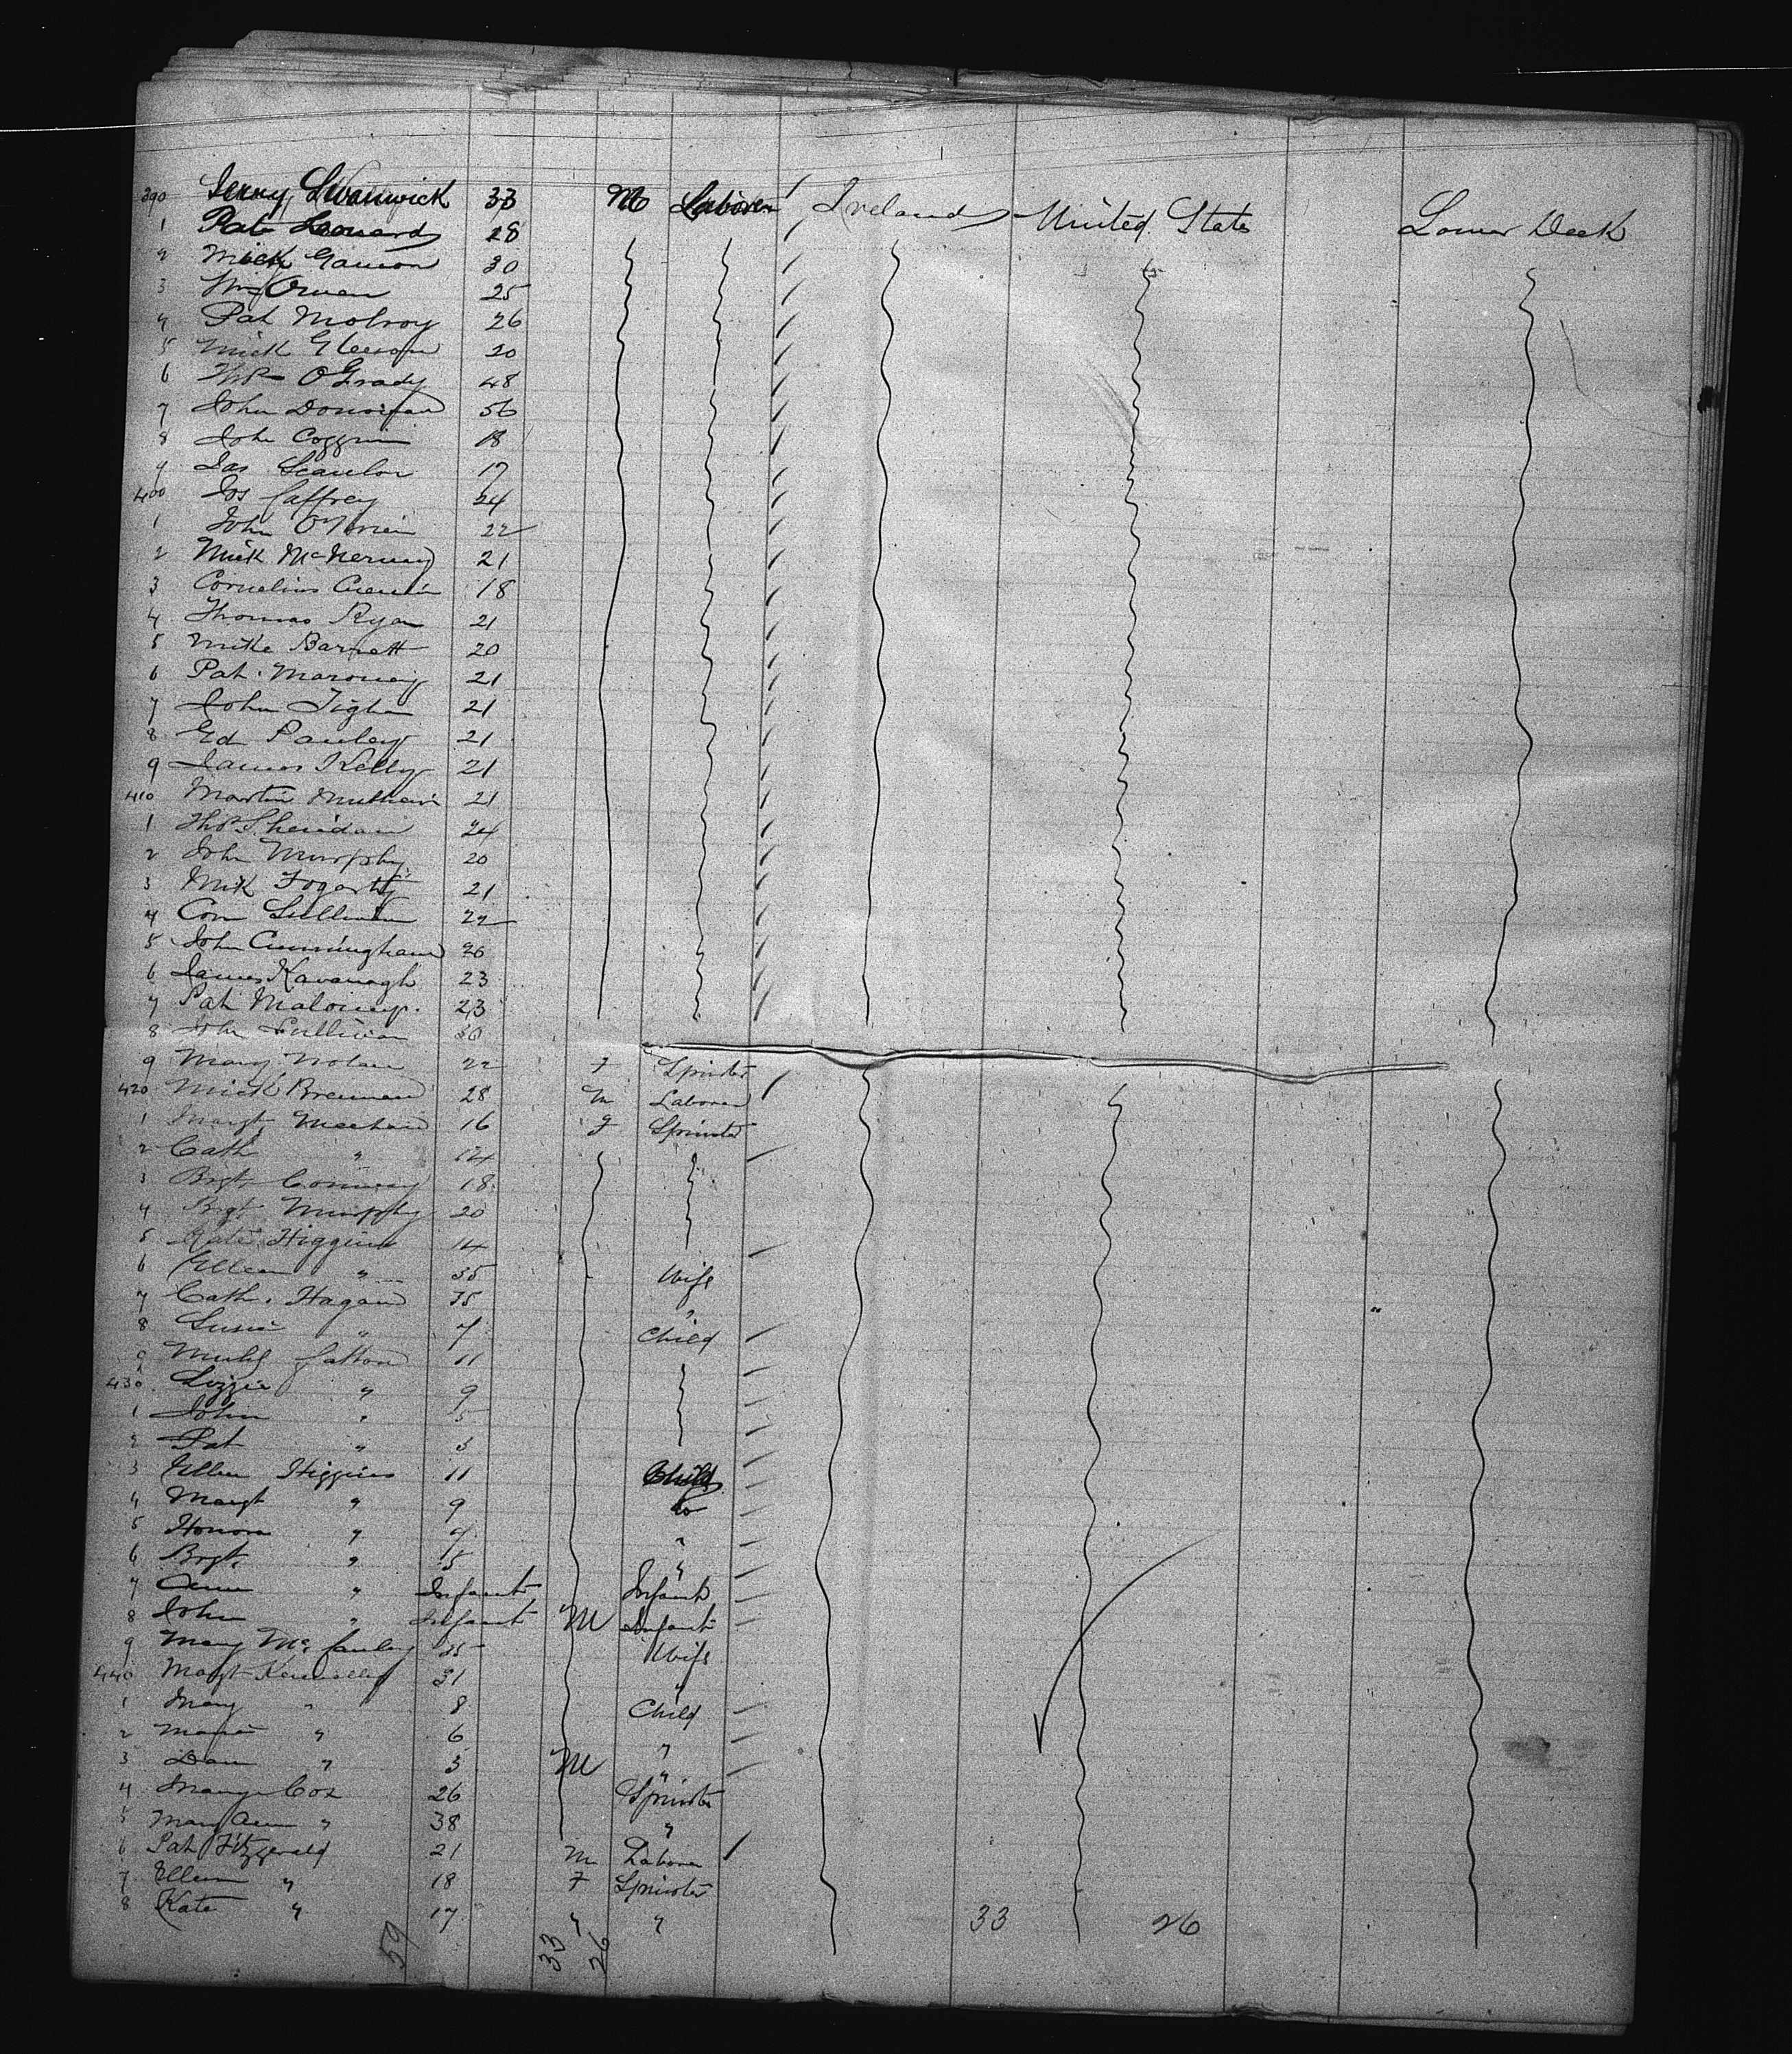 390 Jerry Swanwick 33 M Laborer Ireland United States Lower Deck
1 Pat Leonard 28
2 Mick Gannon 30
3 Wm Owen 25
4 Pat Molroy 26
5 Mick Gleeson 20
6 Thos O'Grady 48
7 John Donovan 56
8 John Coggrin 18
9 Jas Scanlon 17
400 Jos Caffrey 24
1 John O'Brien 22
2 Mick McNerney 21
3 Cornelius 18
4 Thomas Ryan 21
5 Mike Barnett 20
6 Pat. Maroney 21
7 John Tighe 21
8 Ed Pauley 21
9 James Kelly 21
410 Martin 21
1 Thos Sheridan 24
2 John Murphy 20
3 Mik Fogarty 21
4 Con Sullivan 22
5 John Cunningham 26
6 James Kavanagh 23
7 Pat Maloney 23
8 John Sullivan 30
9 Mary Nolan 22 F Spinster
420 Mick Brennan 28 M Laborer
1 Margt Meehan 16 F Spinster
2 Cath " 14
3 Brgt Conway 18
4 Brgt Murphy 20
5 Kate Higgins 14
6 Ellen " 35 Wife
7 Cath. Hagan 35 "
8 Susie " 7 Child
9 Fallon 11
430 Lizzie " 9
1 John " 5
2 Pat " 3
3 Ellen Higgins 11 Child
4 Margt " 9 do
5 Honora " 7 "
6 Brgt " 5 "
7 Ann " Infant Infant
8 John " Infant M Infant
9 Mary McCauley 25 Wife
440 Margt Kennelly 31 "
1 Mary " 8 Child
2 Maria " 6 "
3 Dan " 3 M "
4 Mary Cox 26 Spinster
5 Mary Ann " 38 "
6 Pat Fitzgerald 21 M Laborer
7 Ellen " 18 F Spinster
8 Kate " 17 " "
33 26
59 33 26